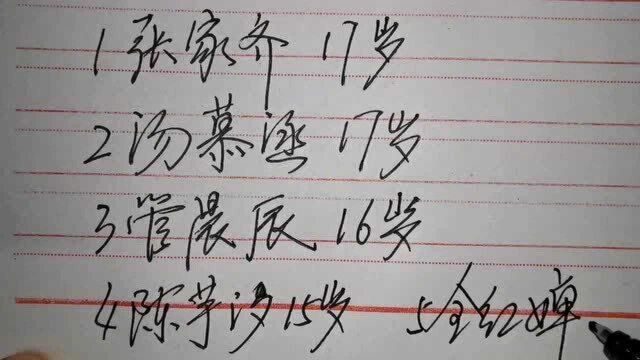 1张家齐 17岁
2汤慕涵 17岁
3管晨辰 16岁
4陈芋汐 15岁 5全红婵